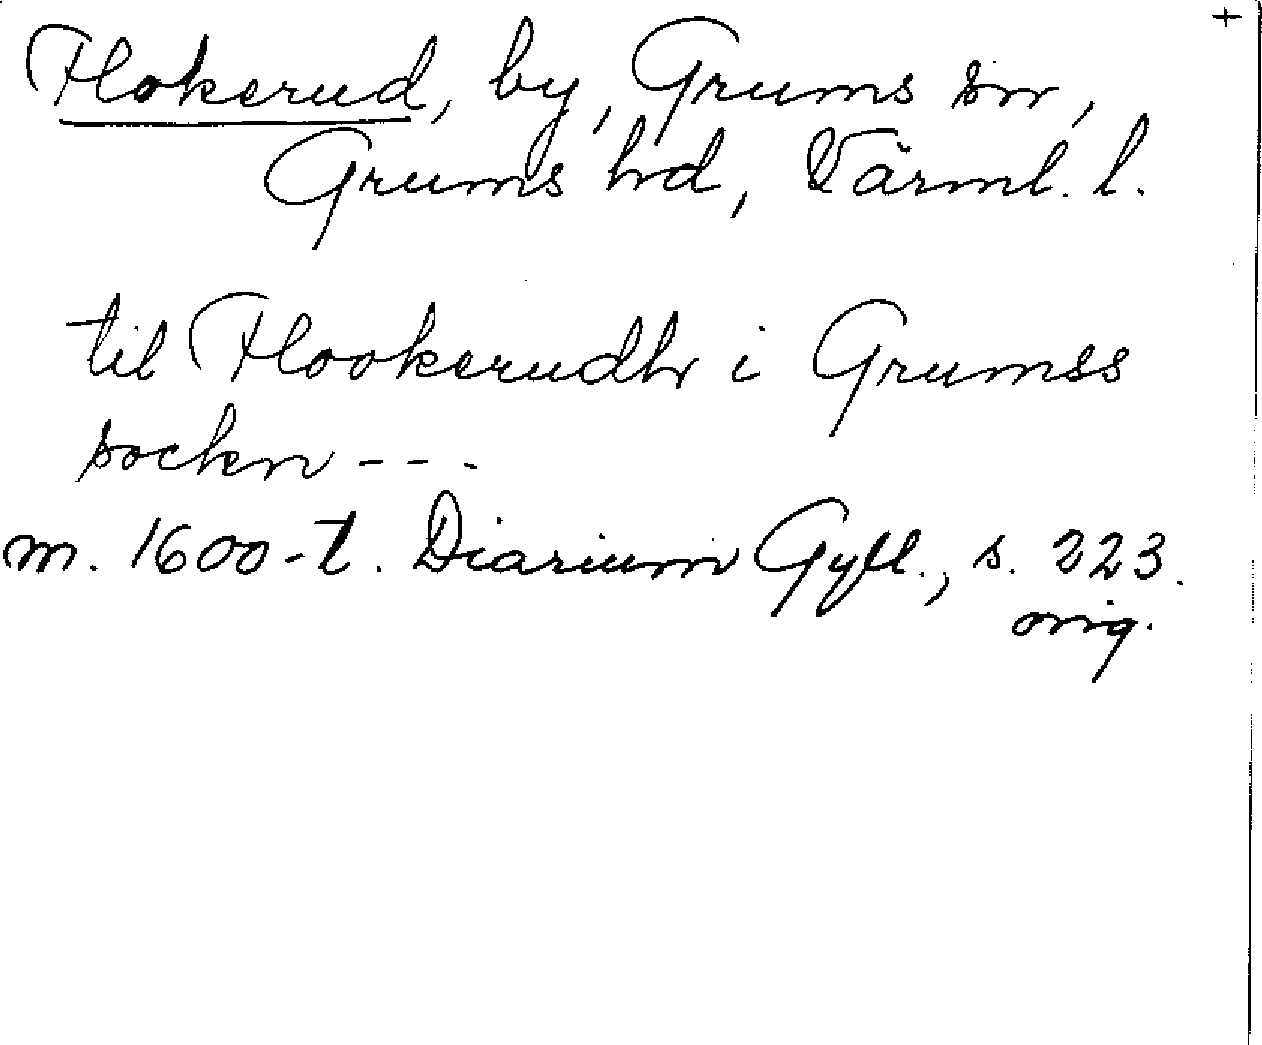 +
Flokerud, by, Grums sn,
Grums hd, Värml. l.
til Flookerudh i Grumss
sockn ---
m. 1600-t. Diarium Gyll., s. 223.
orig.